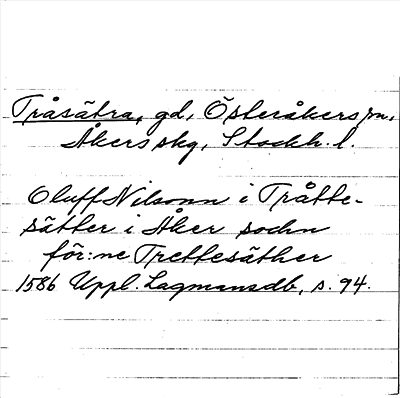 Tråsätra, gd, Österåkers sn,
Åkers skg, Stockh. l.
Oluff Nilsonn i Tråtte-
sätter i Åker sochn
för:ne Trettesäther
1586 Uppl. Lagmansdb, s. 94.